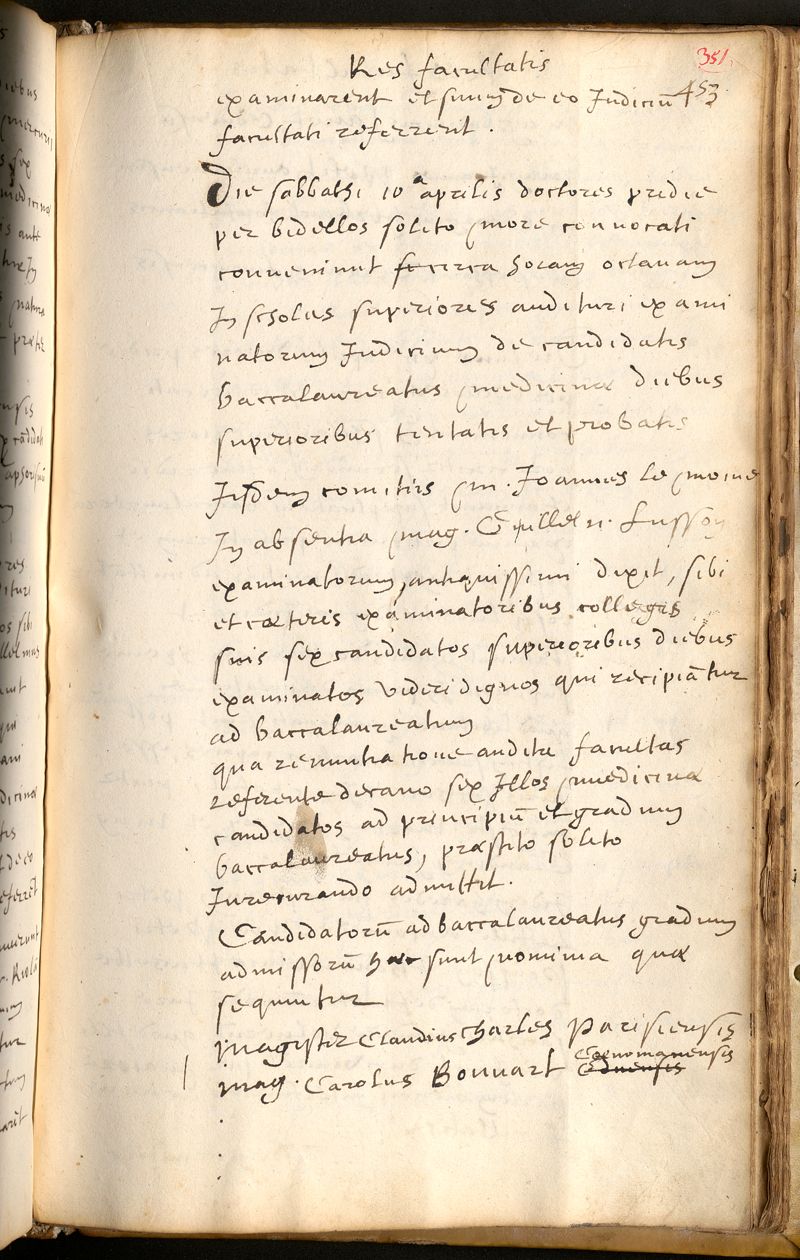 Res facultatis
351
examinarent et suum de eo Judiciū 453
facultati referrent .
Die sabbathi 10ᵃ aprilis doctores pridie
per bidellos solito more convocati
conveniunt circa horam octavam
In scholas superiores audituri exami
natorum Judicium de candidatis
baccalaureatus medicinæ diebus
superioribus tentatis et probatis
Jisdem comitiis m. Joannes le moine
In absentia mag. Guillel n. Lusson
examinatorum antiquissimi dixit, sibi
et cæteris examinatoribus collegis
suis sex candidatos superioribus diebus
examinatos videri dignos qui recipiātur
ad baccalaureatum
qua renuntiatione audita facultas
referente decano sex Illos medicinæ
candidatos ad principiū et gradum
baccalaureatus, præstito solito
Jurejurando admittit.
Candidatorū ad baccalaureatus gradum
admissorū hæc sunt nomina quæ
sequuntur
magister Claudius Charles Parisiensis
Cenomanensis
mag. Carolus Bouvart Eduensis